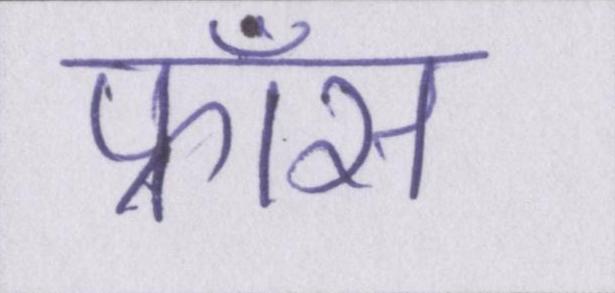 फ्राँस